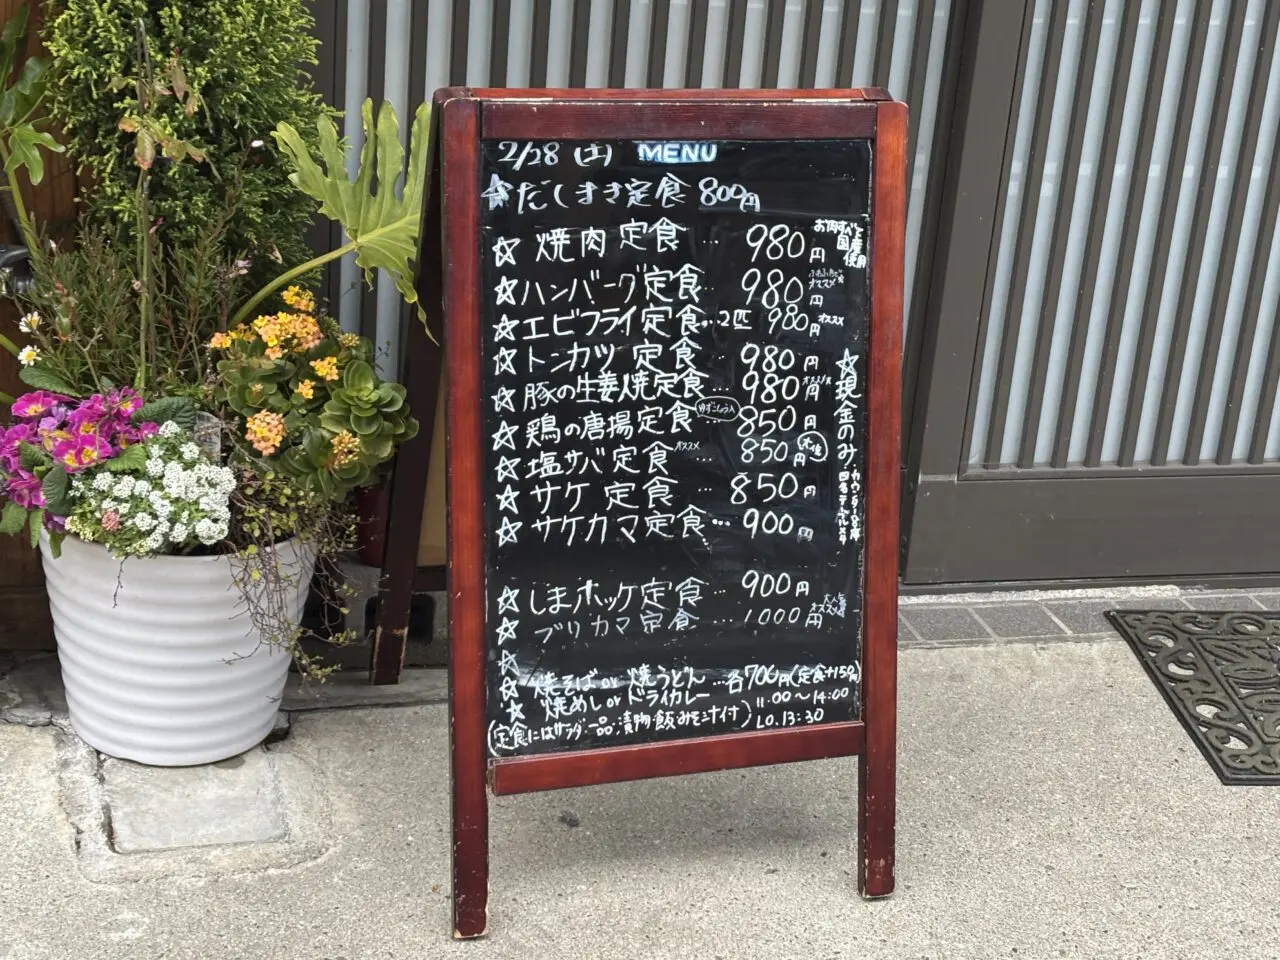 2/28 (土) MENU
☆だしまき定食 800円
☆ 焼肉定食 … 980円
お肉すべて国産使用
☆ハンバーグ定食… 980円 オススメ
☆エビフライ定食…2匹 980円 オススメ
☆トンカツ定食… 980円
☆豚の生姜焼定食… 980円 オススメ
☆鶏の唐揚定食 ゆずこしょう入 850円
☆塩サバ定食 オススメ … 850円
☆サケ定食 … 850円
☆サケカマ定食… 900円
☆現金のみ!
☆しまホッケ定食… 900円
☆ブリカマ定食 … 1000円 大人気 オススメ
☆
☆焼そばor焼うどん …各700円(定食+150円)
☆焼めしorドライカレー 11:00〜14:00
(定食にはサラダ・一品・漬物・飯・みそ汁付) LO.13:30